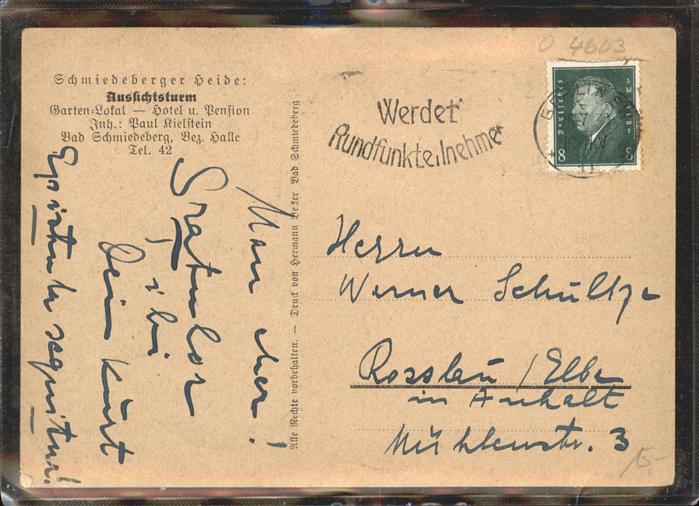 Schmiedeberger Heide:
Aussichtsturm
Garten-Lokal — Hotel u. Pension
Inh.: Paul Kielstein
Bad Schmiedeberg, Bez. Halle
Tel. 42
Mon cher!
Gratulor
tibi
Dein Kurt
Epistula sequitur!
Alle Rechte vorbehalten. — Druck von Hermann Becker Bad Schmiedeberg.
0 4603
Werdet
Rundfunkteilnehmer
BERLIN
Deutsches Reich
8 8
Herrn
Werner Schultze
Rosslau/Elbe
in Anhalt
Mühlenstr. 3
15.-